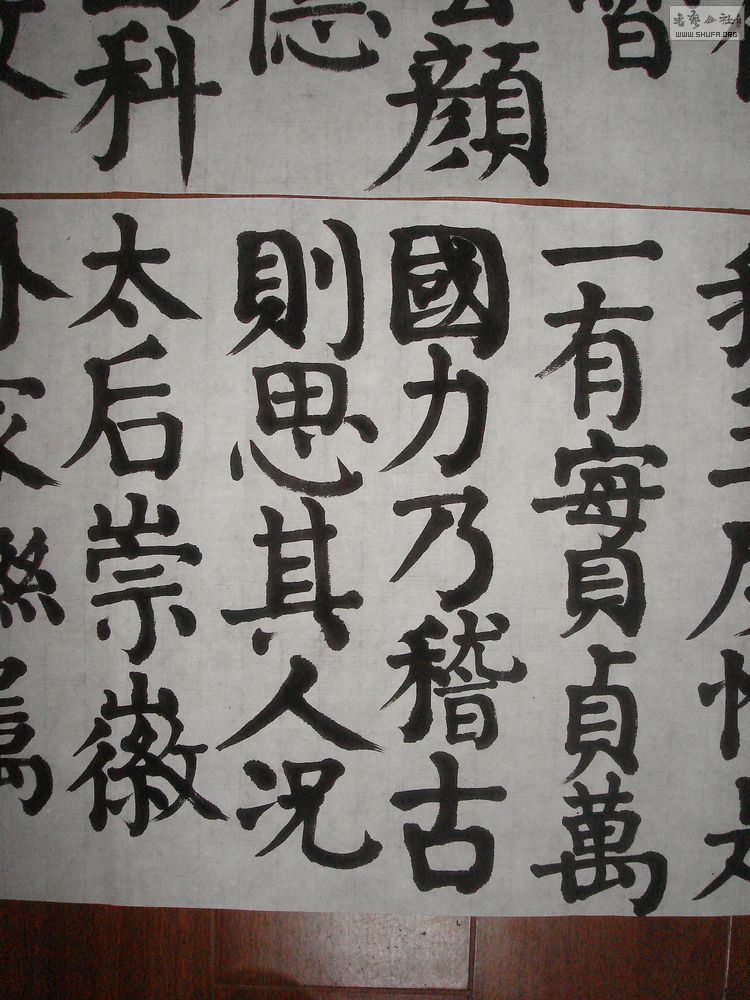 書藝公社
WWW.SHUFA.ORG
顏
德
科
一有實貞萬
國力乃稽古
則思其人況
太后崇徽